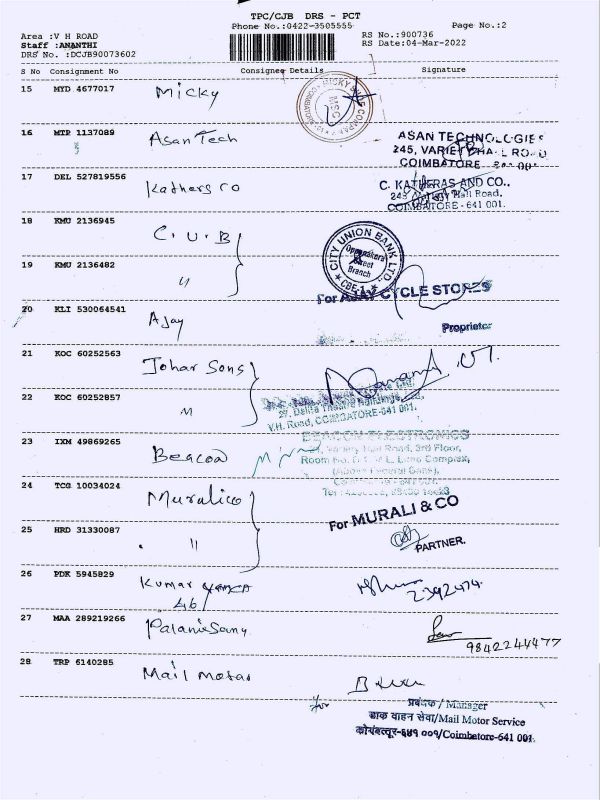 TPC/CJB DRS - PCT
Phone No.:0422-3505555
Page No.:2
Area :V H ROAD
Staff :ANANTHI
DRS No. :DCJB90073602
RS No.:900736
RS Date:04-Mar-2022
S No Consignment No Consignee Details Signature
15 MYD 4677017 Micky
16 MTP 1137089 Asan Tech
ASAN TECHNOLOGIES
245, VARIETY HALL ROAD
COIMBATORE
17 DEL 527819556 Kathers co
C. KATHERAS AND CO.,
Hall Road.
COIMBATORE - 641 001.
18 KMU 2136945 C. U. B
CITY UNION BANK LTD.
Oppanakara
Street
Branch
CBE-1
19 KMU 2136482 "
For AJAY CYCLE STORES
20 KLI 530064541 Ajay
Proprietor
21 KOC 60252563 Johar Sons
22 KOC 60252857 "
V.H. Road, COIMBATORE-641 001.
23 IXM 49869265 Beacon
BEACON ELECTRONICS
Hall Road, 3rd Floor,
24 TCG 10034024 Muralico
For MURALI & CO
25 HRD 31330087 "
PARTNER.
26 PDK 5945829 Kumar
2392474
27 MAA 289219266 Palanisamy
9842244477
28 TRP 6140285 Mail motor
for
प्रबंधक / Manager
डाक वाहन सेवा/Mail Motor Service
कोयंबत्तूर-६४१ ००१/Coimbatore-641 001.